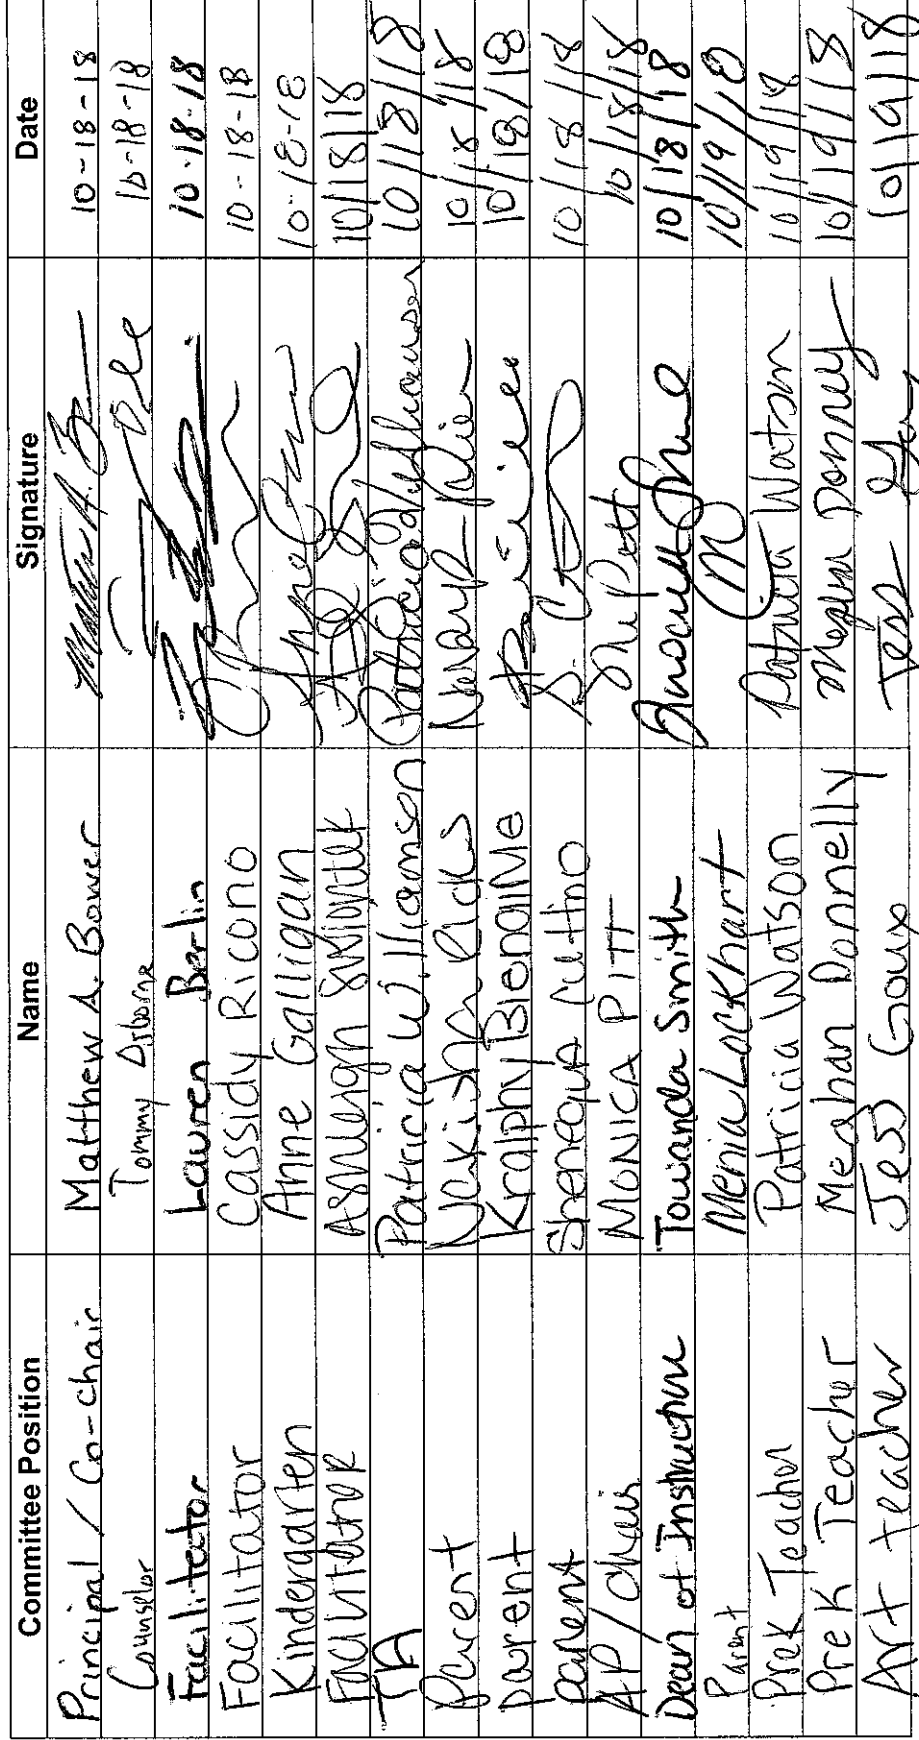 Committee Position Name Signature Date
Principal / Co-chair Matthew A. Bower 10-18-18
Counselor Tommy Osborne 10-18-18
Facilitator Lauren Berlin 10-18-18
Facilitator Cassidy Ricono 10-18-18
Kindergarten Anne Galligan 10-18-18
Facilitator Ashleigh 10/18/18
TA Patricia Williamson Patricia Williamson 10/18/18
Parent Nakisha Ricks 10/18/18
parent Kralphy Bienaime 10/18/18
parent Shenequa Cuthno 10/18/18
AP/chair MONICA PITT 10/18/18
Dean of Instruction Towanda Smith 10/18/18
Parent Menia Lockhart 10/19/18
PreK Teacher Patricia Watson Patricia Watson 10/19/18
PreK Teacher Meghan Donnelly 10/19/18
Art teacher Jess Goux Jess 10/19/18